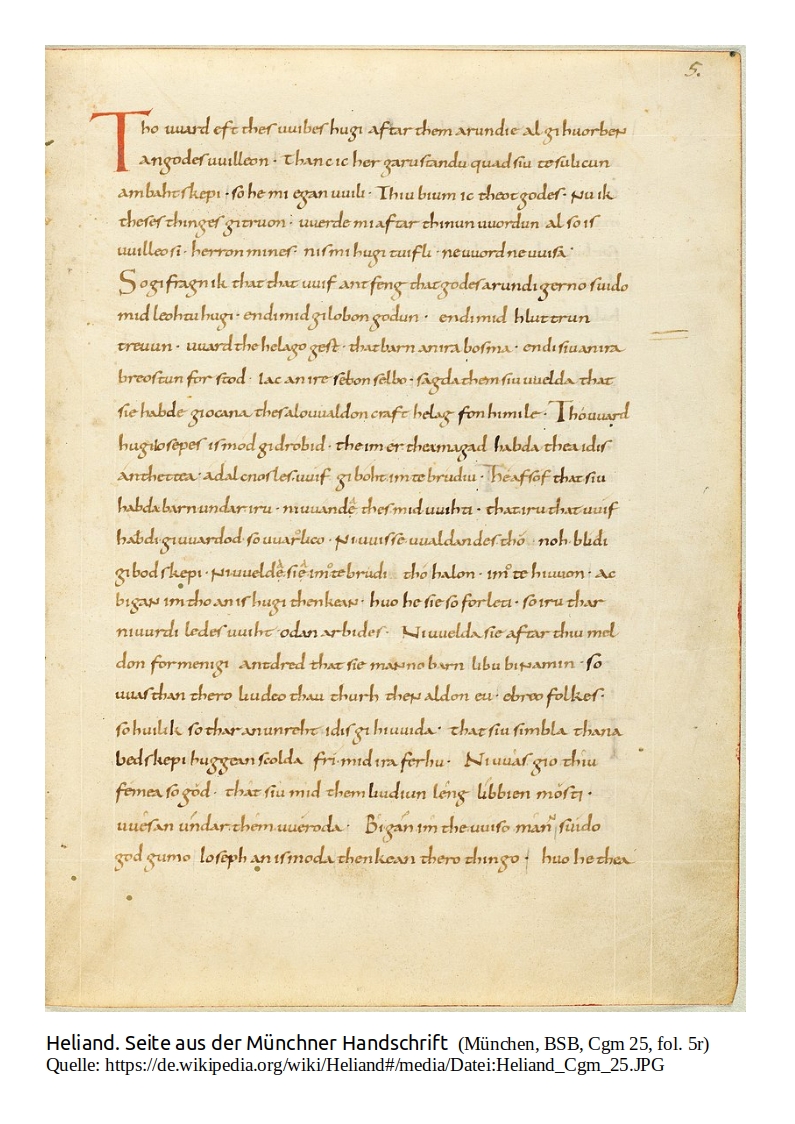 5.
Tho uuard eft thes uuibes hugi aftar them arundie al gihuorben
an godes uuilleon · than c ic her garu standu quad siu te sulicun
ambahtskepi · so he mi egan uuili · Thiu bium ic theot godes · Nu ik
theses thinges gitruon · uuerde mi aftar thinun uuordun al so is
uuilleo si · herron mines · nis mi hugi tuifli · ne uuord ne uuisa ·
So gifragn ik that that uuif antfeng that godes arundi gerno suido
mid leohtu hugi · endi mid gilobon godun · endi mid hluttrun
treuun · uuard the helago gest · that barn an ira bosma · endi siu an ira
breostun forstod · Iac an ire sebon selbo · sagda them siu uuelda that
sie habde giocana thes alouualdon craft helag fon himile · Tho uuard
hugi Iosepes is mod gidrobid · the im er thea magad habda thea idis
anthettea · adalcnosles uuif giboht im te brudiu · He afsof that siu
habda barn undar iru · ni uuande thes mid uuihti · that iru that uuif
habdi giuuardod so uuarlico · Ni uuisse uualdandes tho noh blidi
gibodskepi · Ni uuelde sie im te brudi tho halon · im te hiuuon · Ac
bigan im tho an is hugi thenkean · huo he sie so forleti · so iru thar
ni uurdi ledes uuiht odan arbides · Ni uuelda sie aftar thiu mel
don for menigi antdred that sie manno barn libu binamin · so
uuas than thero liudeo thau thurh then aldon eu · ebreo folkes ·
so huilik so thar an unreht idis gihiuuida · that siu simbla thana
bedskepi buggean scolda fri mid ira ferhu · Ni uuas gio thiu
femea so god · that siu mid them liudiun leng libbien mosti ·
uuesan undar them uueroda · Bigan im the uuiso mann suido
god gumo Ioseph an is moda thenkean thero thingo · huo he thea
Heliand. Seite aus der Münchner Handschrift (München, BSB, Cgm 25, fol. 5r)
Quelle: https://de.wikipedia.org/wiki/Heliand#/media/Datei:Heliand_Cgm_25.JPG